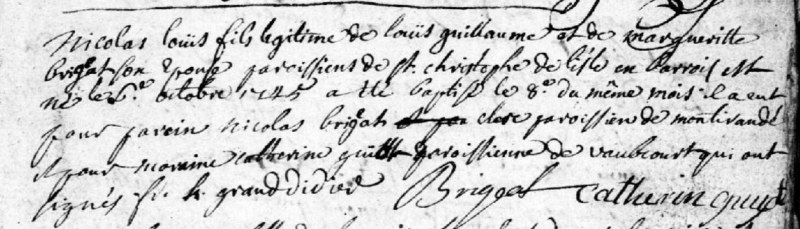 Nicolas louïs fils legitime de louïs guillaume et de margueritte
brigat son Epouse paroissiens de st. christophe de l'isle en barrois est
né le 6e. octobre 1745 a eté baptisé le 8e. du même mois il a eut
pour parein Nicolas brigat clerc paroissien de montirandé
et pour mareine catherine paroissienne de vaubcourt qui ont
signés h grand didier Brigat Catherin